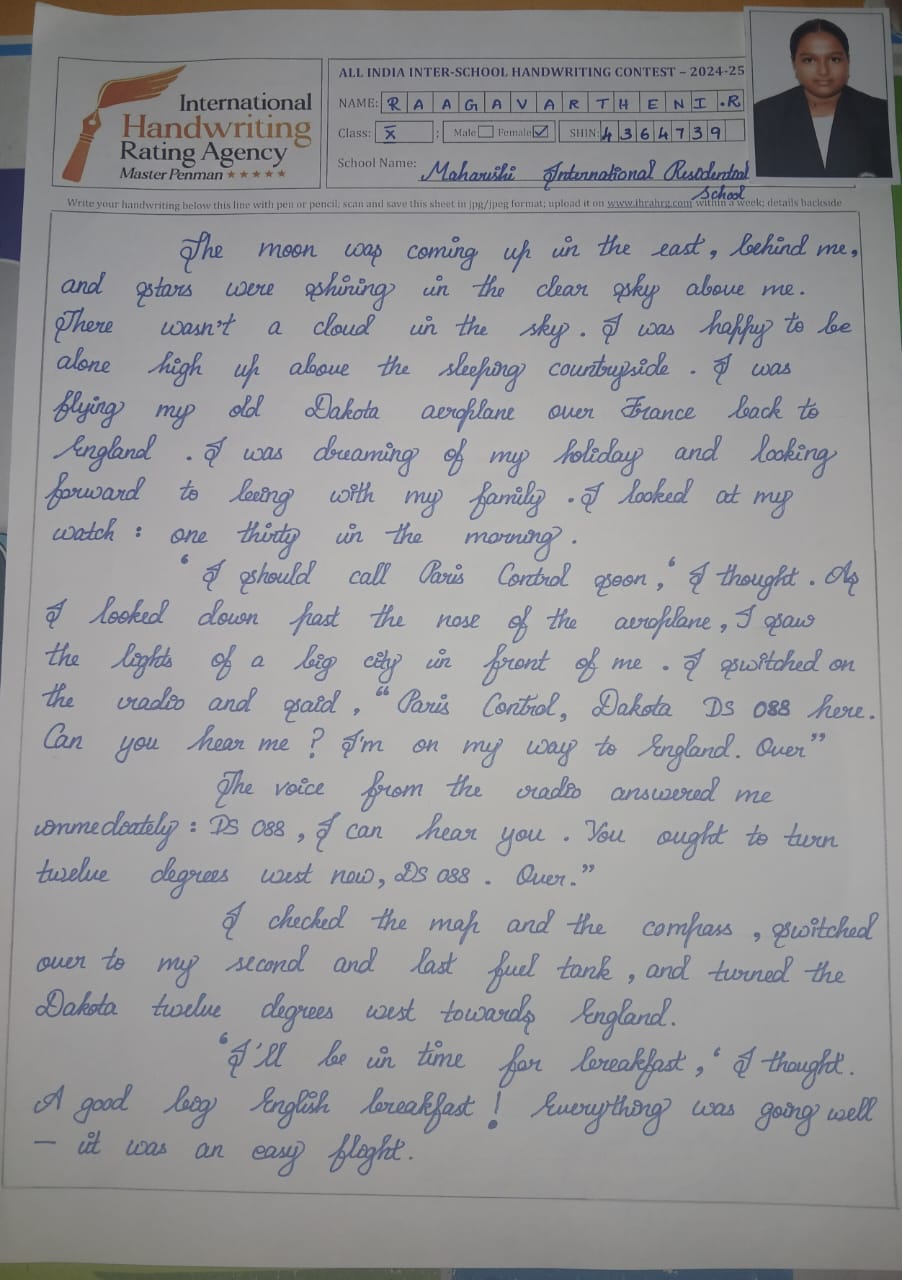 International
Handwriting
Rating Agency
Master Penman ★★★★★
ALL INDIA INTER-SCHOOL HANDWRITING CONTEST – 2024-25
NAME: RAAGAVARTHENI.R
Class: X Male Female ✓ SHIN: 4364739
School Name: Maharishi International Residential
School
Write your handwriting below this line with pen or pencil; scan and save this sheet in jpg/jpeg format; upload it on www.ihrahrg.com within a week; details backside
The moon was coming up in the east, behind me,
and stars were shining in the clear sky above me.
There wasn't a cloud in the sky. I was happy to be
alone high up above the sleeping countryside. I was
flying my old Dakota aeroplane over France back to
England. I was dreaming of my holiday and looking
forward to being with my family. I looked at my
watch: one thirty in the morning.
'I should call Paris Control soon,' I thought. As
I looked down past the nose of the aeroplane, I saw
the lights of a big city in front of me. I switched on
the radio and said, "Paris Control, Dakota DS 088 here.
Can you hear me? I'm on my way to England. Over"
The voice from the radio answered me
immediately: DS 088, I can hear you. You ought to turn
twelve degrees west now, DS 088. Over."
I checked the map and the compass, switched
over to my second and last fuel tank, and turned the
Dakota twelve degrees west towards England.
'I'll be in time for breakfast,' I thought.
A good big English breakfast! Everything was going well
— it was an easy flight.